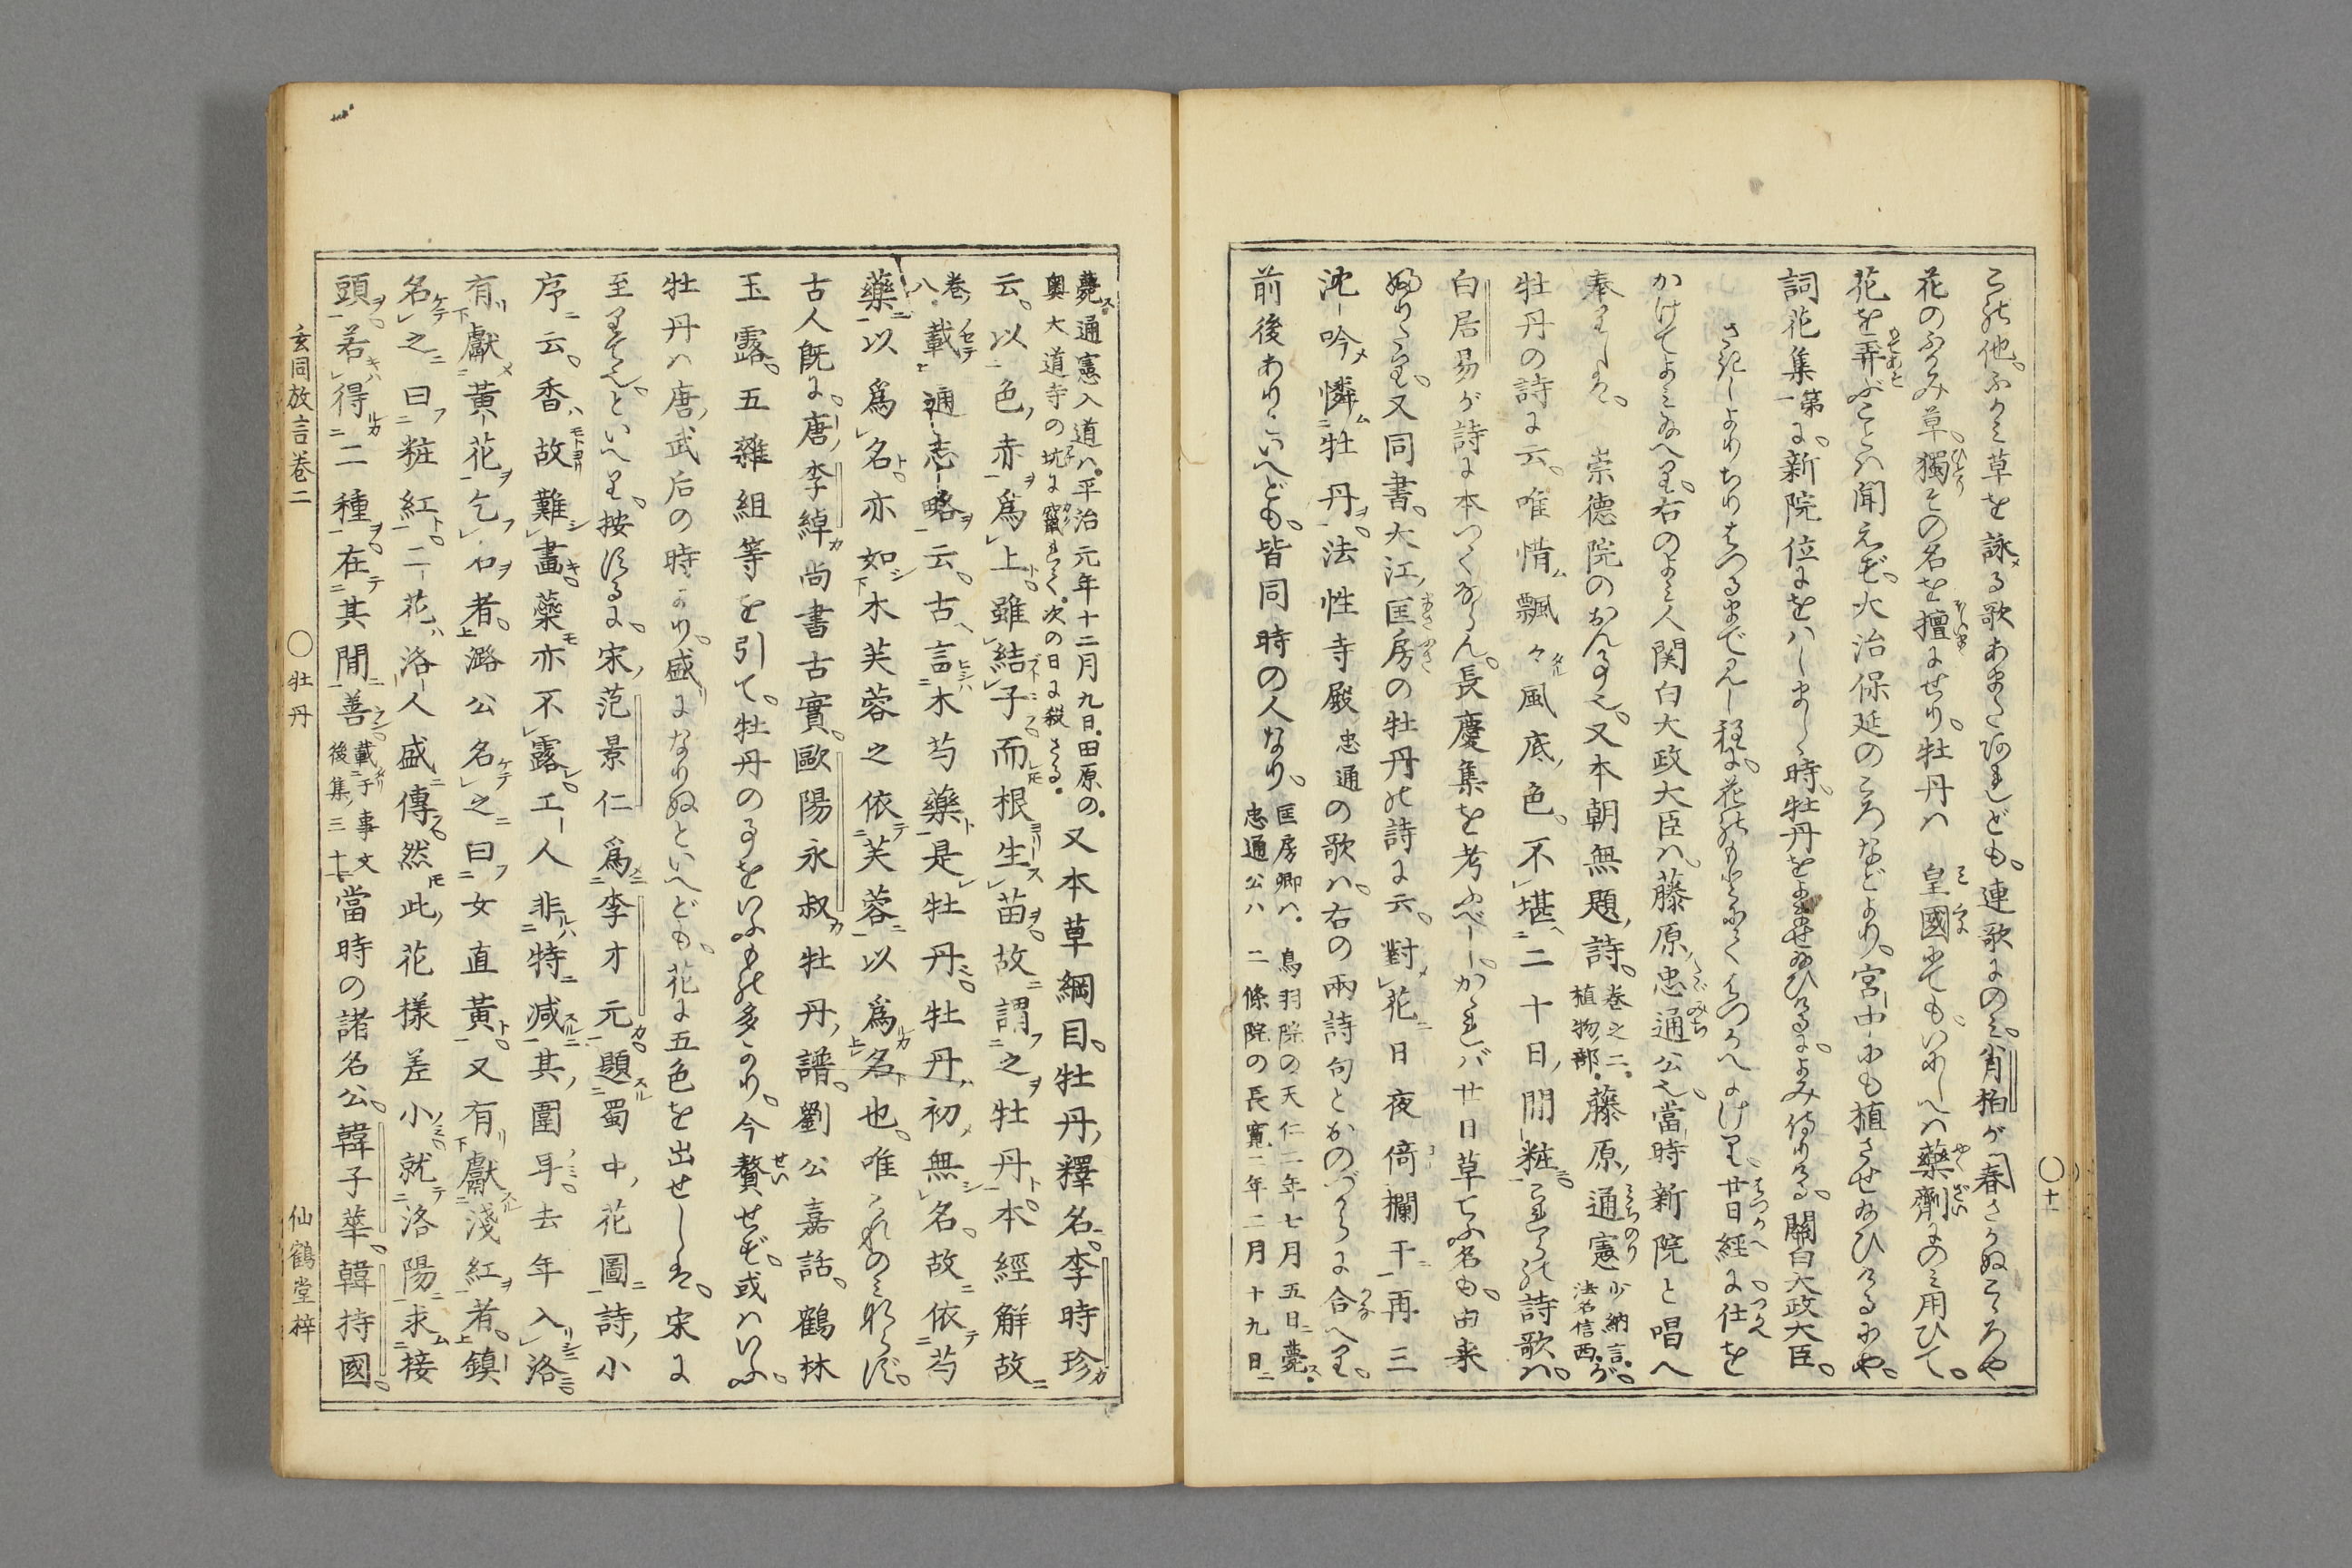 これ他。ふかみ草を詠る歌あまたあれども。連歌にのみ。肖柏が「春さかぬこゝろや
花のふかみ草。獨その名を擅にせり。牡丹は　皇國にても。いにしへは藥劑にのみ用ひて。
花を弄ぶことは聞えず。大治保延のころなどより。宮中にも植させ給ひけるにや。
詞花集第一に。新院位にをはしましゝ時。牡丹をよませ給ひけるに。よみ侍りける。關白大政大臣。
さきしよりちりはつるまで見し程に。花のもとにてはつかへにけり。廿日經に仕を
かけてよみ給へり。右のよみ人関白大政大臣は。藤原忠通公也。當時新院と唱へ
奉りしは。　崇德院のおん事也。又本朝無題詩。巻之二。植物部。藤原通憲少納言。法名信西。が。
牡丹の詩に云。唯惜飄々風底色。不堪二十日間粧。これらの詩歌は。
白居易が詩に本つくならん。長慶集を考ふべし。かゝれば廿日草てふ名も。由来
ゆゑ。又同書。大江匡房の牡丹の詩に云。對花日夜倚欄干。再三
沈吟憐牡丹。法性寺殿忠通の歌は。右の兩詩句とおのづからに合へり。
前後ありといへども。皆同時の人なり。匡房卿ハ。鳥羽院の天仁二年七月五日ニ薨ス。忠通公ハ二條院の長寛二年二月十九日ニ
十一
薨ス。通憲入道ハ。平治元年十二月九日。田原の。奥大道寺の坑に竄れて。次の日に殺さる。又本草綱目。牡丹釋名。李時珍カ
云。以色赤爲上。雖結子而根生苗。故謂之牡丹。本經觧故ニ
八巻載通志略云。古言木芍藥是牡丹。牡丹初無名。故依芍
藥以爲名。亦如木芙蓉之依芙蓉以爲名也。唯これのみならず。
古人既に。唐李綽カ尚書古實。歐陽永叔カ牡丹譜。劉公嘉話。鶴林
玉露。五雜組等を引て。牡丹の事をいふもの多かり。今贅せず。或はいふ。
牡丹ハ唐武后の時より。盛になりぬといへども。花に五色を出せしは。宋に
至りて也。といへり。按ずるに。宋范景仁爲李才元カ題蜀中花圖詩。小
序云。香故難畫藥亦不露。工人非特减其圍耳。去年入洛
有獻黃花乞名者。潞公名之曰女直黃。又有獻淺紅者。鎮
名之曰粧紅。二花洛人盛傳。然此花樣差小。就洛陽求接
頭若得二種在其間善。載于事文後集三十。當時の諸名公。韓子華。韓持國。
玄同放言巻二　〇牡丹　仙鶴堂梓